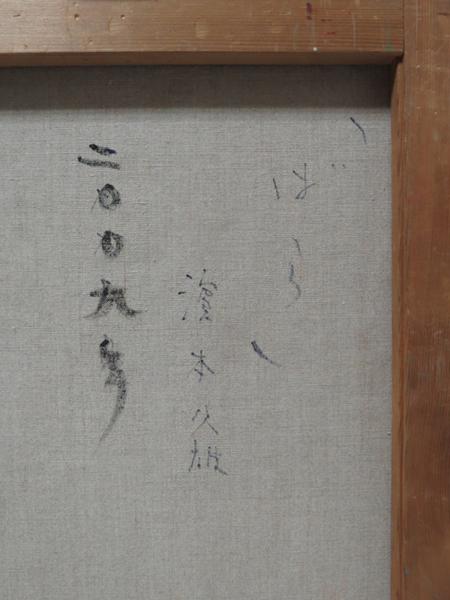 「ばら」
濱本久雄
二〇〇九年